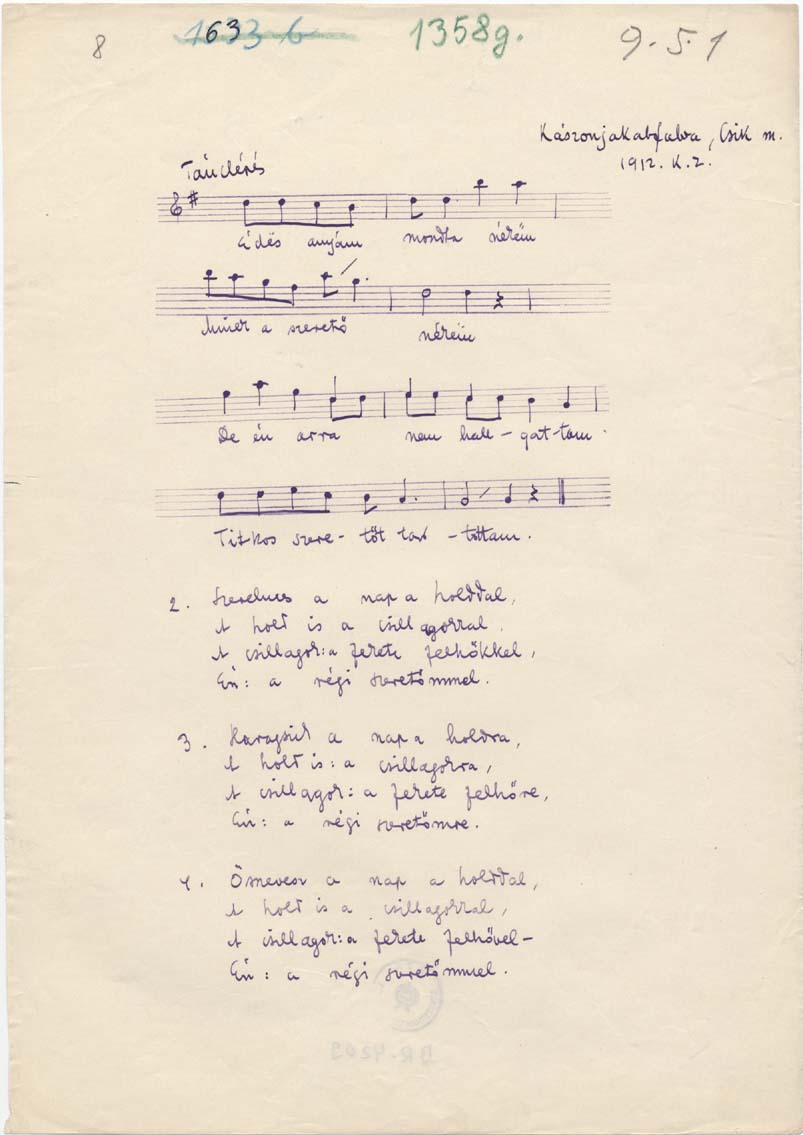 8 1633 b 1358g. 9.5.1
Kászonjakabfalva, Csik m.
1912. K. Z.
Tánclépés
Édes anyám mondta nékëm
Minek a szerető
nékëm
De én arra nem hall-gat-tam.
Titkos szere-tőt tar-tottam.
2. Szerelmes a nap a holddal,
A hold is a csillagokkal.
A csillagok: a fekete felhőkkel,
Én: a régi szeretőmmel.
3. Haragszik a nap a holdra,
A hold is: a csillagokra,
A csillagok: a fekete felhőre,
Én: a régi szeretőmre.
4. Összevesz a nap a holddal,
A hold is a csillagokkal,
A csillagok: a fekete felhővel-
Én: a régi szeretőmmel.
BR-4209